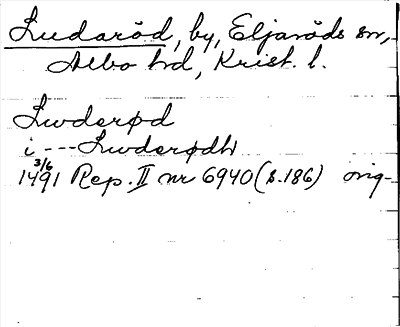 Ludaröd, by, Eljaröds sn,
Albo hd, Krist. l.
Lwderød
i --- Lwderødh
3/6
1491 Rep. II nr 6940 (s. 186) orig.